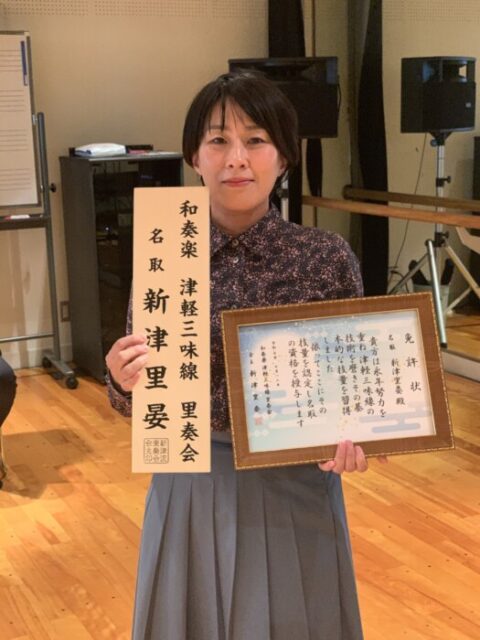 和奏楽 津軽三味線 里奏会
名取 新津里晏
免許状
名取 新津里晏殿
貴方は永年努力を
重ね津軽三味線の
技術を磨きその基
本的な技量を習得
しました
依ってここにその
技量を認定し名取
の資格を授与します
和奏楽津軽三味線里奏会
会主 新津里奏